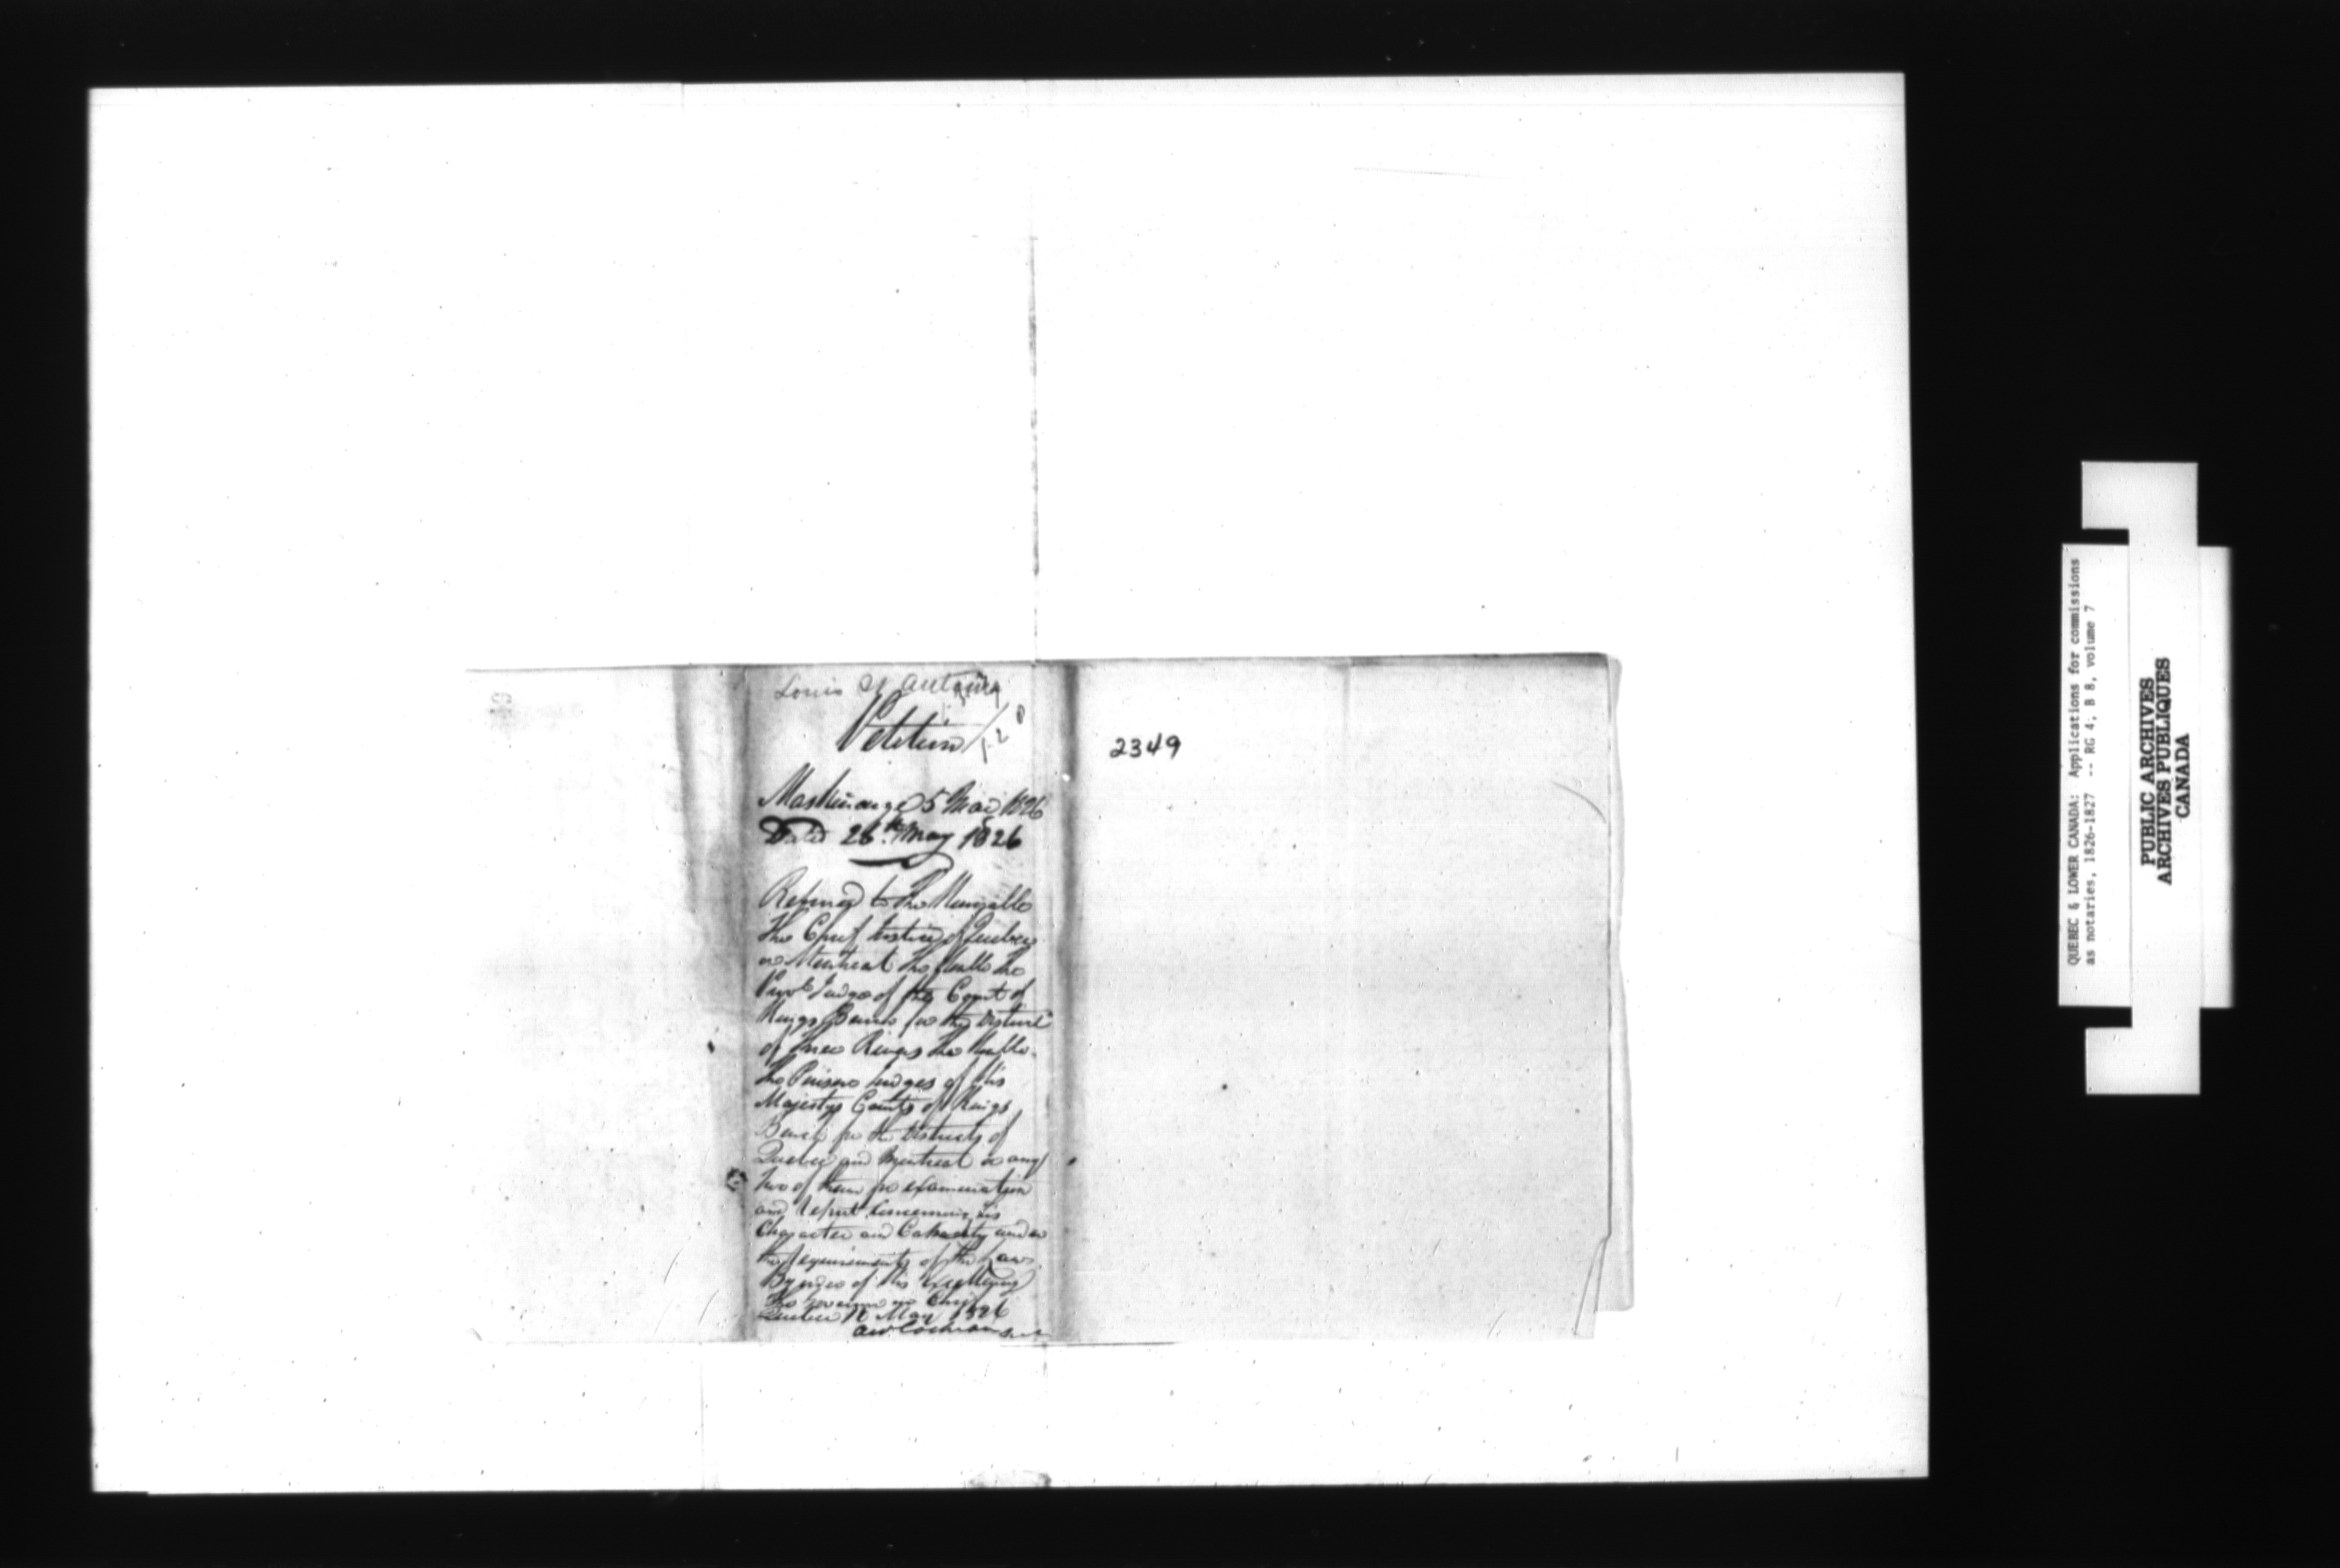 Louis G Antoine
Petition
Maskinongé 5 Mai 1826
Dated 26th May 1826
Referred to the Honorable
The Chief Justice of Quebec
or Montreal The Honble the
Provl Judge of the Court of
Kings Bench for the District
of Three Rivers The Honble
the Puisne Judges of His
Majestys Courts of Kings
Bench for the Districts of
Quebec and Montreal or any
two of them for examination
and report concerning his
Character and Capacity under
the requirements of the Law.
By order of His Excellency
The Governor in Chief
Quebec May 1826
AW Cochran Secy
2349
QUEBEC & LOWER CANADA: Applications for commissions
as notaries, 1826-1827 -- RG 4, B 8, volume 7
PUBLIC ARCHIVES
ARCHIVES PUBLIQUES
CANADA